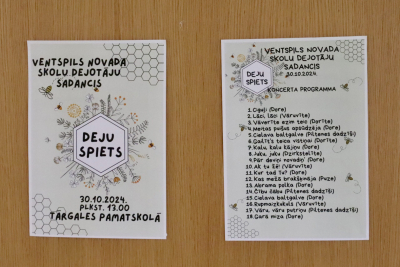 VENTSPILS NOVADA
SKOLU DEJOTĀJU
SADANCIS
DEJU
SPIETS
30.10.2024.
PLKST. 13.00
TĀRGALES PAMATSKOLĀ
VENTSPILS NOVADA
SKOLU DEJOTĀJU
SADANCIS
30.10.2024.
DEJU
SPIETS
KONCERTA PROGRAMMA
1. Cīruļi (Dore)
2. Lāci, lāci (Vāruvīte)
3. Vāverīte ezim teic (Dore)
4. Meitas puišus apsūdzēja (Dore)
5. Cielava baltgalve (Piltenes dadzīši)
6. Gailīt's teica vistiņai (Dore)
7. Kaļu, kaļu kājiņu (Dore)
8. Juku, juku (Dzirkstelīte)
9. Pār deviņi novadiņi (Dore)
10. Ak tu žē! (Vāruvīte)
11. Kur tad tu? (Dore)
12. Kas mežā brakšķināja (Puze)
13. Ābrama polka (Dore)
14. Cību čābu (Piltenes dadzīši)
15. Cielava baltgalve (Dore)
16. (Vāruvīte)
17. Vāru, vāru putriņu (Piltenes dadzīši)
18. Garā miza (Dore)